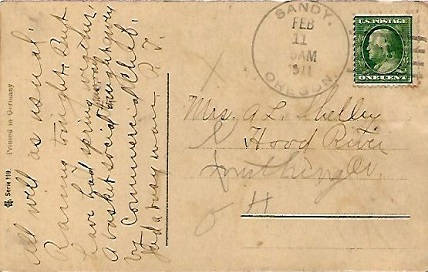 All well as usual.
Raining tonight. But
have had spring weather.
A basket social tonight given
by Commercial Club.
busy man.
Printed in Germany
Serie 119.
SANDY,
FEB
11
8AM
1911
OREGON.
U.S. POSTAGE
ONE CENT
Mrs. A. L. Shelley
Hood River
Or.